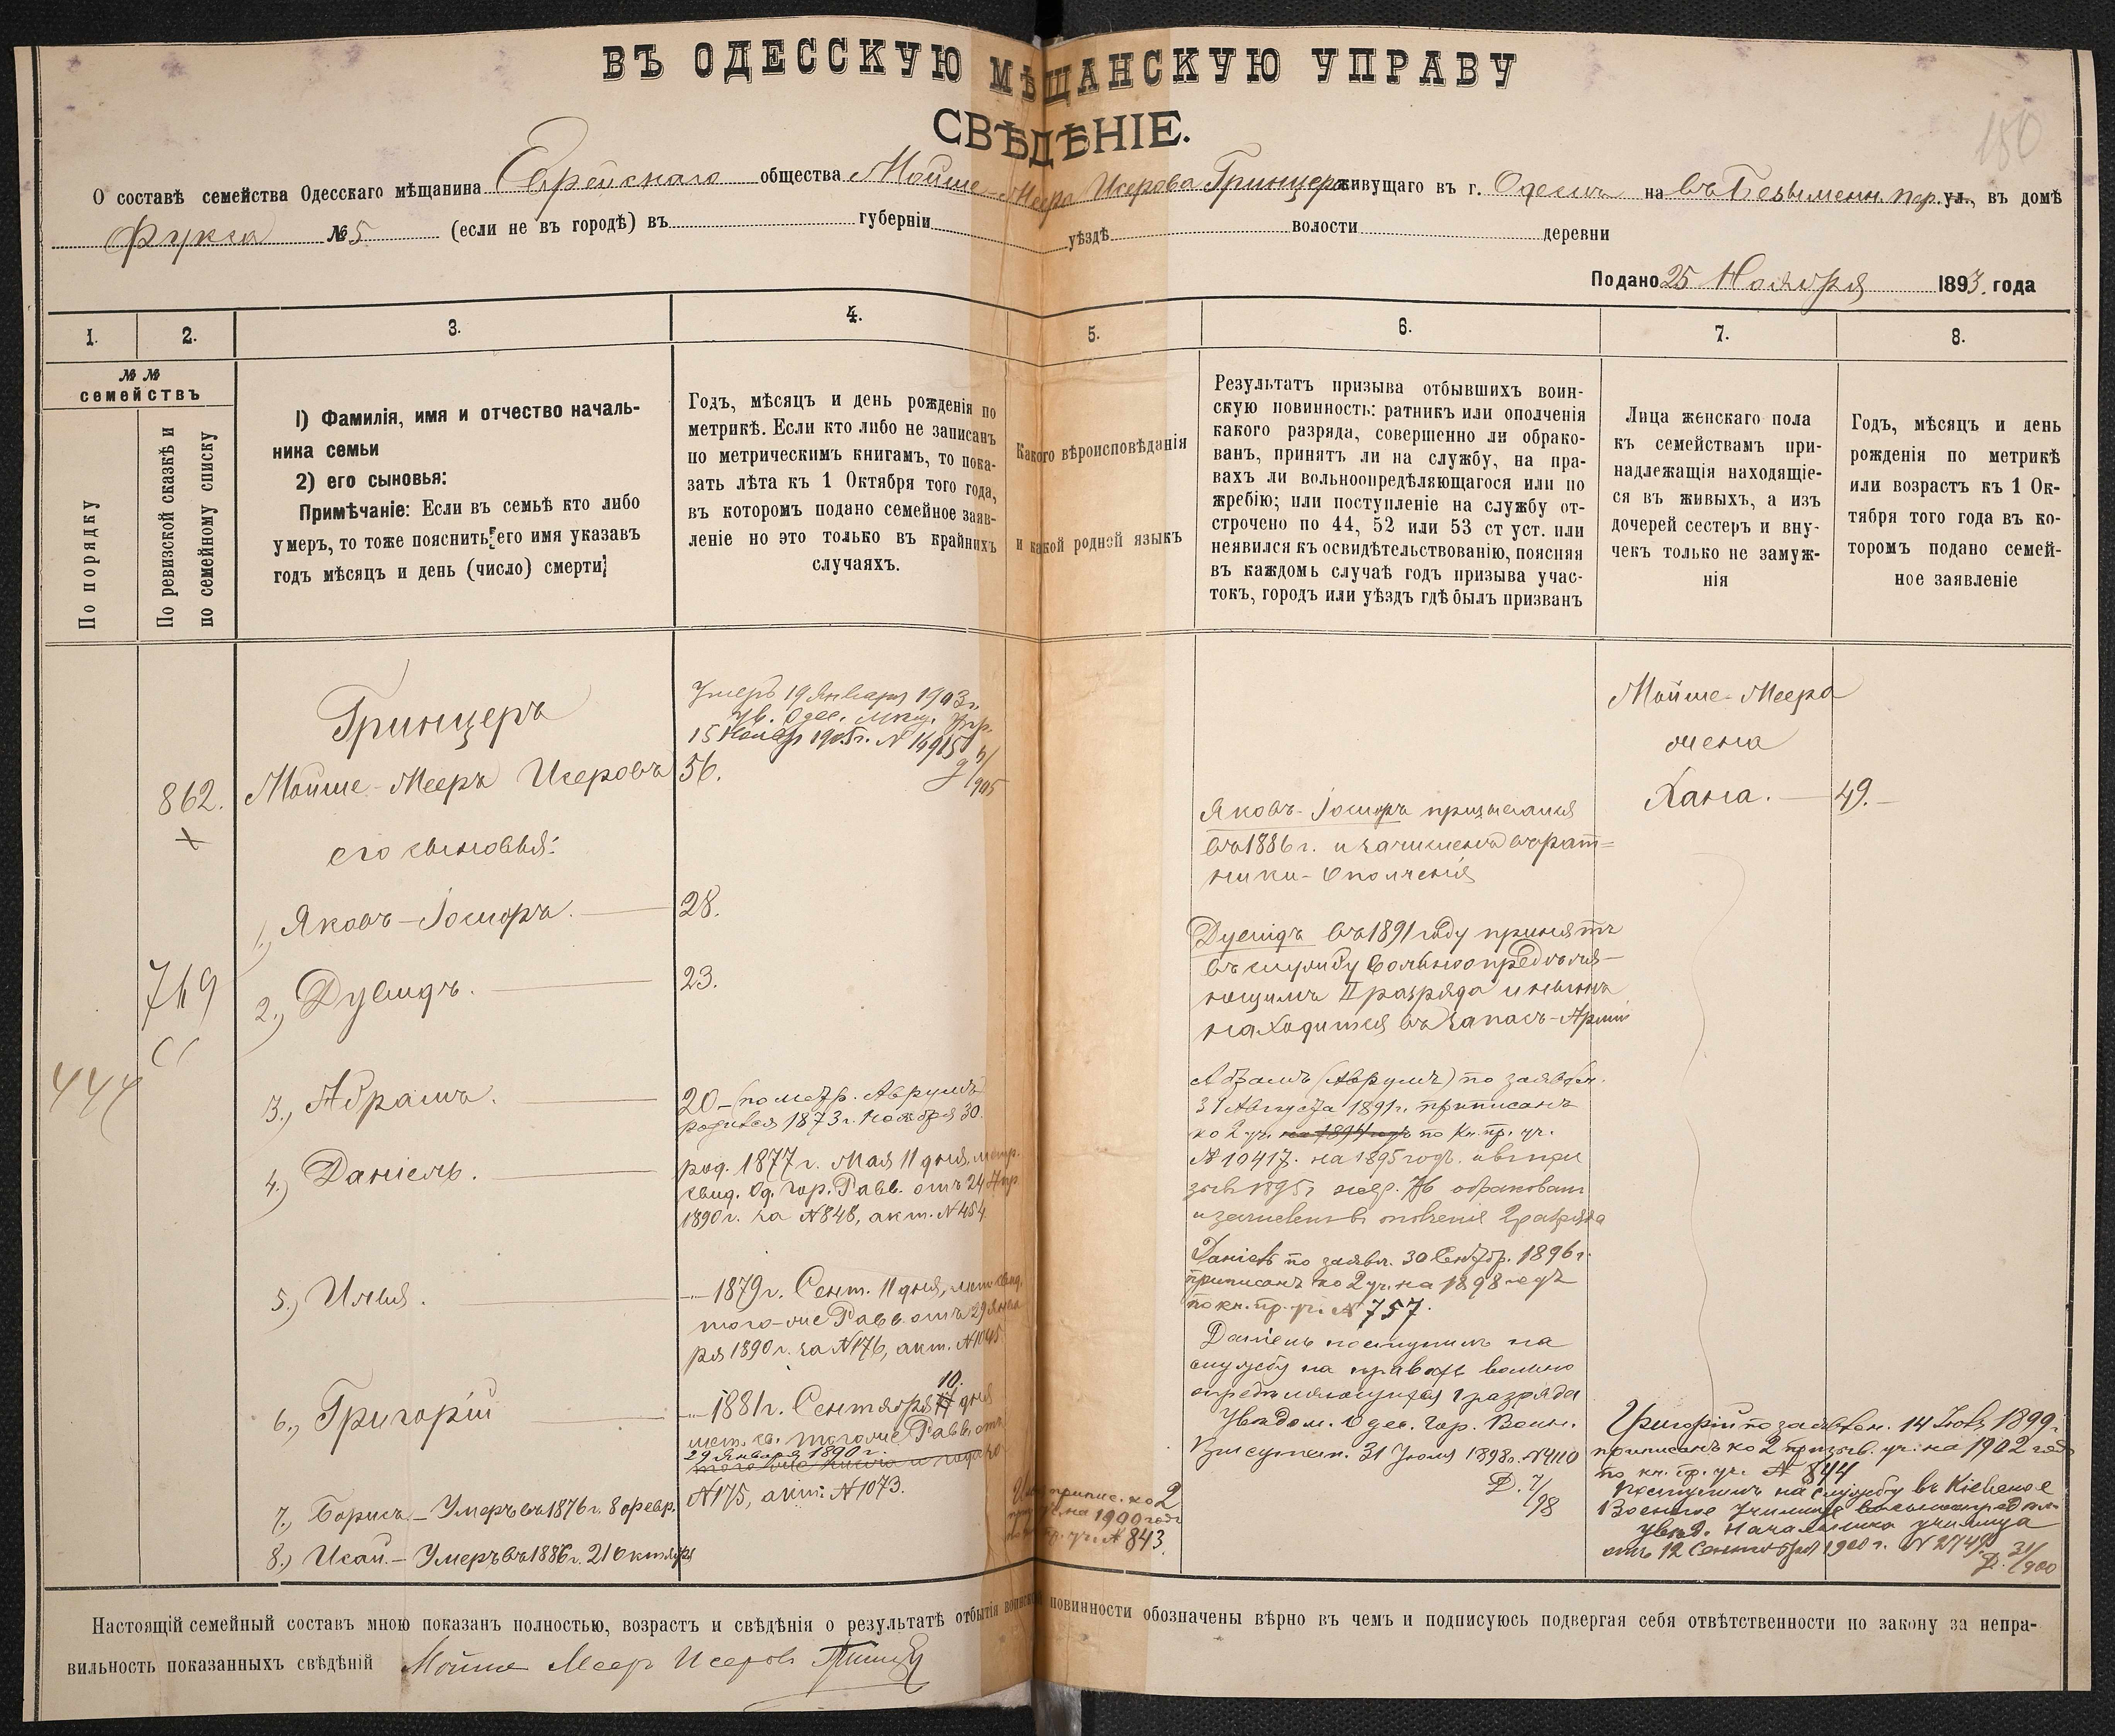 ВЪ ОДЕССКУЮ МѢЩАНСКУЮ УПРАВУ
СВѢДѢНІЕ.
150
О составѣ семейства Одесскаго мѣщанина Еврейскаго общества Мойше-Меера Исерова Гринцера живущаго въ г. Одессѣ на въ Безымен. пер. ул., въ домѣ
Фукса №5 (если не въ городѣ) въ губерніи уѣздѣ волости деревни
Подано 25 Ноября 1893. года
1.
2.
3.
4.
5.
6.
7.
8.
№ №
семействъ
По порядку
По ревизской сказкѣ и
по семейному списку
1) Фамилія, имя и отчество началь-
ника семьи
2) его сыновья:
Примѣчаніе: Если въ семьѣ кто либо
умеръ, то тоже пояснить его имя указавъ
годъ мѣсяцъ и день (число) смерти
Годъ, мѣсяцъ и день рожденія по
метрикѣ. Если кто либо не записанъ
по метрическимъ книгамъ, то пока-
зать лѣта къ 1 Октября того года,
въ которомъ подано семейное заяв-
леніе но это только въ крайнихъ
случаяхъ.
Какого вѣроисповѣданія
и какой родной языкъ
Результатъ призыва отбывшихъ воин-
скую повинность: ратникъ или ополченія
какого разряда, совершенно ли обрако-
ванъ, принятъ ли на службу, на пра-
вахъ ли вольноопредѣляющагося или по
жребію; или поступленіе на службу от-
строчено по 44, 52 или 53 ст уст. или
неявился къ освидѣтельствованію, поясняя
въ каждомъ случаѣ годъ призыва учас-
токъ, городъ или уѣздъ гдѣ былъ призванъ
Лица женскаго пола
къ семействамъ при-
надлежащія находящіе-
ся въ живыхъ, а изъ
дочерей сестеръ и вну-
чекъ только не замуж-
нія
Годъ, мѣсяцъ и день
рожденія по метрикѣ
или возрастъ къ 1 Ок-
тября того года въ ко-
торомъ подано семей-
ное заявленіе
444
862.
769
Гринцеръ
Мойше-Мееръ Исеровъ
его сыновья:
1.) Яковъ-Іосифъ.
2.) Дувидъ.
3.) Абрамъ.
4.) Даніель.
5.) Илья.
6.) Григорій
7.) Борисъ – Умеръ въ 1876 г. 8 февр.
8.) Исай. – Умеръ въ 1886 г. 21 октября
Умеръ 19 Января 1903 г.
ув. Одес. мѣщ. Упр.
15 Ноября 1905 г. N 14915
56.
28.
23.
20 – (по метр. Аврумъ)
родився 1873 г. Ноября 30.
род. 1877 г. Мая 11 дня, метр.
свид. Од. Гор. Равв. отъ 24 Апр.
1890 г. за N 848, акт. N 454
–„– 1879 г. Сент. 11 дня, мет. свид.
того-же Равв. отъ 29 Янва
ря 1890 г. за N 176, акт. N 1045
10.
–„– 1881 г. Сентября 11 дня
мет. св. того же Равв. отъ
29 Января 1890 г.
того же числа и года за
N 175, акт. N 1073.
Илья припис. ко 2
на 1900 годъ
пр. уч. N 843.
Яковъ-Іосифъ призывался
въ 1886 г. и зачисленъ въ рат=
ники-Ополченія
Дувидъ въ 1891 году принятъ
въ службу вольноопредѣля-
ющимъ II разряда и нынѣ
находится въ Запасѣ-Арміи
Абрамъ (Аврумъ) по заявлен.
31 Августа 1891 г. приписанъ
ко 2 уч. на 1894 годъ по Кн. пр. уч.
N 10417. на 1895 годъ.
зывѣ 1895 г. обракован
и зачислен въ ополченія 2 разряда
Даніель по заявл. 30 Сентбр. 1896 г.
приписанъ ко 2 уч. на 1898 годъ
по кн. пр. уч. N 757.
Даніель поступилъ на
службу на правахъ вольно
опредѣляющагося 1 разряда
Увѣдом. Одес. Гор. Воин.
Присутств. 31 Іюля 1898 г. N 4110
Д. 7/98
Мойше-Меера
жена
Хана. – 49. –
Григорій по заявлен. 14 Іюля 1899 г.
приписанъ ко 2 призыв. уч. на 1902 годъ
по кн. пр. уч. N 844
Поступилъ на службу въ Кіевское
Военное Училище вольноопредѣл.
увѣд. Начальника училища
отъ 12 Сентября 1900 г. N 2749
Д. 31/900
Настоящій семейный составъ мною показанъ полностью, возрастъ и свѣдѣнія о результатѣ отбытія воинской повинности обозначены вѣрно въ чемъ и подписуюсь подвергая себя отвѣтственности по закону за непра-
вильность показанныхъ свѣдѣній Мойше Меер Исеров Гринцер